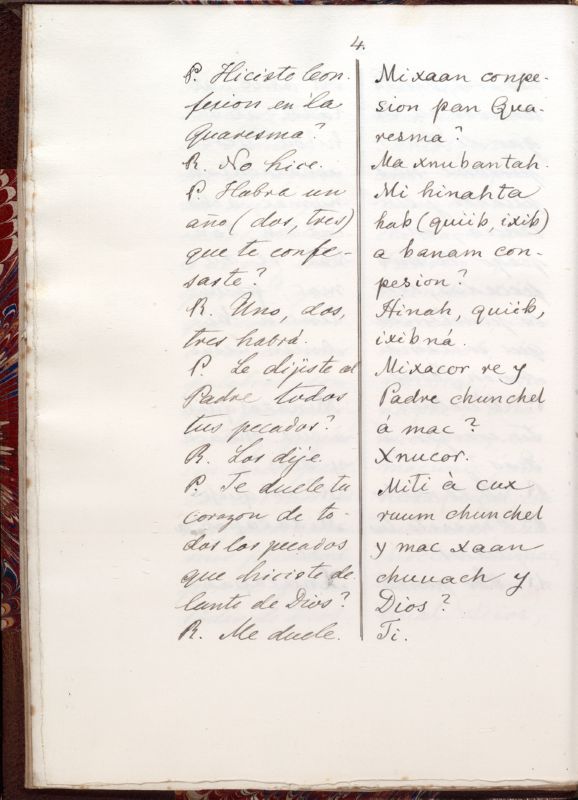 4.
P. Hiciste Con-
fesion en la
Quaresma?
R. No hice.
P. Habra un
año (dos, tres)
que te confe-
saste?
R. Uno, dos,
tres habrá.
P. Le dijiste al
Padre todos
tus pecados?
R. Los dije.
P. Te duele tu
corazon de to-
dos los pecados
que hiciste de-
lante de Dios?
R. Me duele.
Mixaan conpe-
sion pan Qua-
resma?
Ma xnubantah.
Mi hinahta
hab (quiib, ixib)
a banam con-
pesion?
Hinah, quiib,
ixibná.
Mixacor re y
Padre chunchel
á mac?
Xnucor.
Miti à cux
ruum chunchel
y mac xaan
chuuach y
Dios?
Ti.